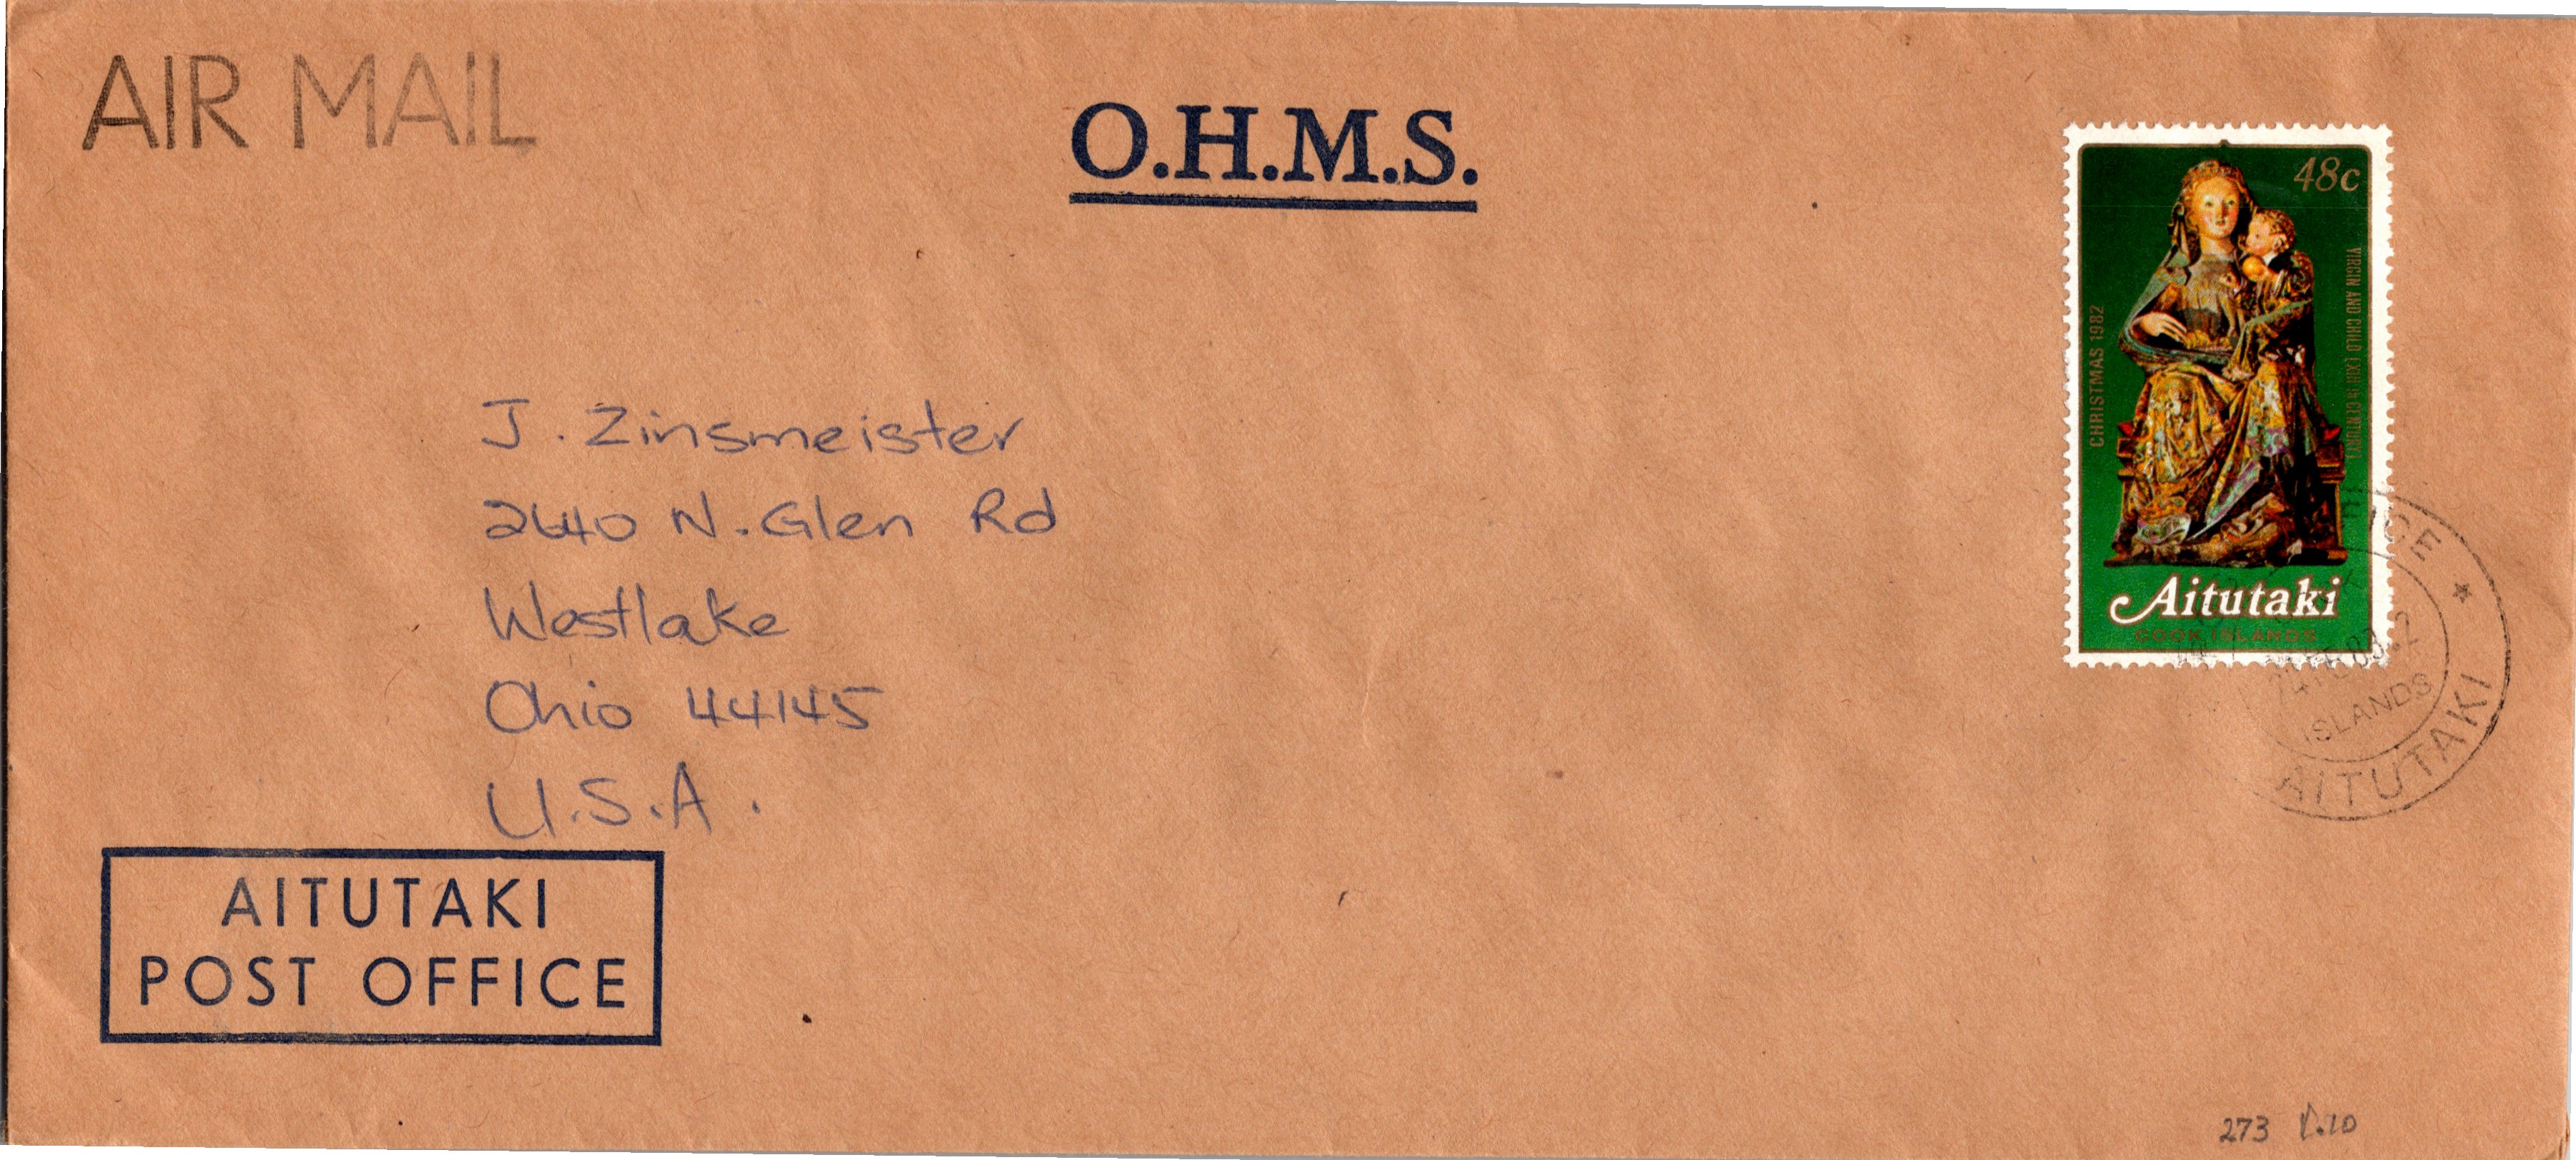 AIR MAIL
O.H.M.S.
48c
CHRISTMAS 1982
VIRGIN AND CHILD (XIII th CENTURY)
Aitutaki
COOK ISLANDS
J. Zinsmeister
2640 N. Glen Rd
Westlake
Ohio 44145
U.S.A.
ISLANDS
AITUTAKI
AITUTAKI
POST OFFICE
273